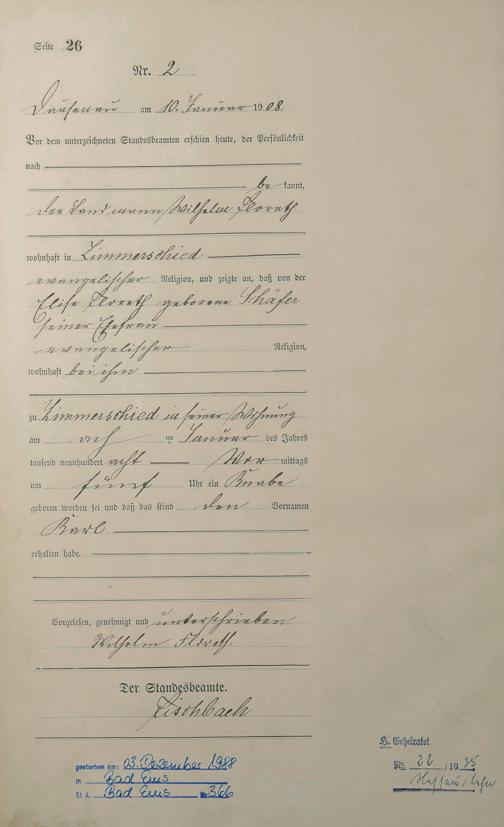 Seite 26
Nr. 2
Dausenau am 10. Januar 1908.
Vor dem unterzeichneten Standesbeamten erschien heute, der Persönlichkeit
nach
be kannt,
der Landmann Wilhelm Floreth
wohnhaft in Zimmerschied
evangelischer Religion, und zeigte an, daß von der
Elise Floreth geborene Schäfer
seiner Ehefrau
evangelischer Religion,
wohnhaft bei ihm
zu Zimmerschied in seiner Wohnung
am ach im Januar des Jahres
tausend neunhundert acht Vor mittags
um fünf Uhr ein Knabe
geboren worden sei und daß das Kind den Vornamen
Karl
erhalten habe.
Vorgelesen, genehmigt und unterschrieben
Wilhelm Floreth.
Der Standesbeamte.
Fischbach
gestorben am: 03. Dezember 1988
in Bad Ems
St A. Bad Ems Nr. 366
Geheiratet
Nr. 22 / 1935
Nassau / Lahn